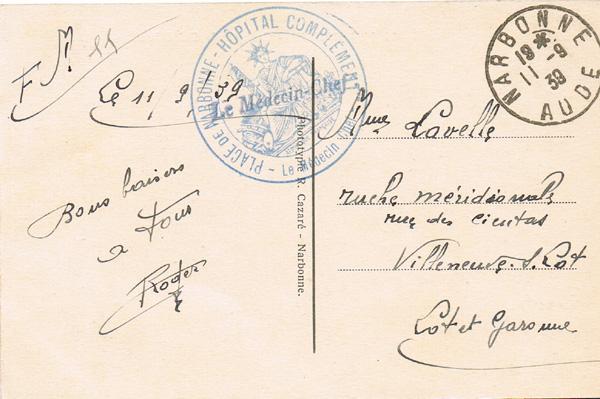 F M
Le 11/9/39
PLACE DE NARBONNE - HÔPITAL COMPLÉMENT
Le Médecin-Chef
Le Médecin Chef
NARBONNE
19 *
11 -9
39
AUDE
Bons baisers
a Tous
Roger
Phototypie R. Cazaré - Narbonne.
Mme Lavelle
ruche méridionale
rue des cieutas
Villeneuve. S. Lot
Lot et Garonne